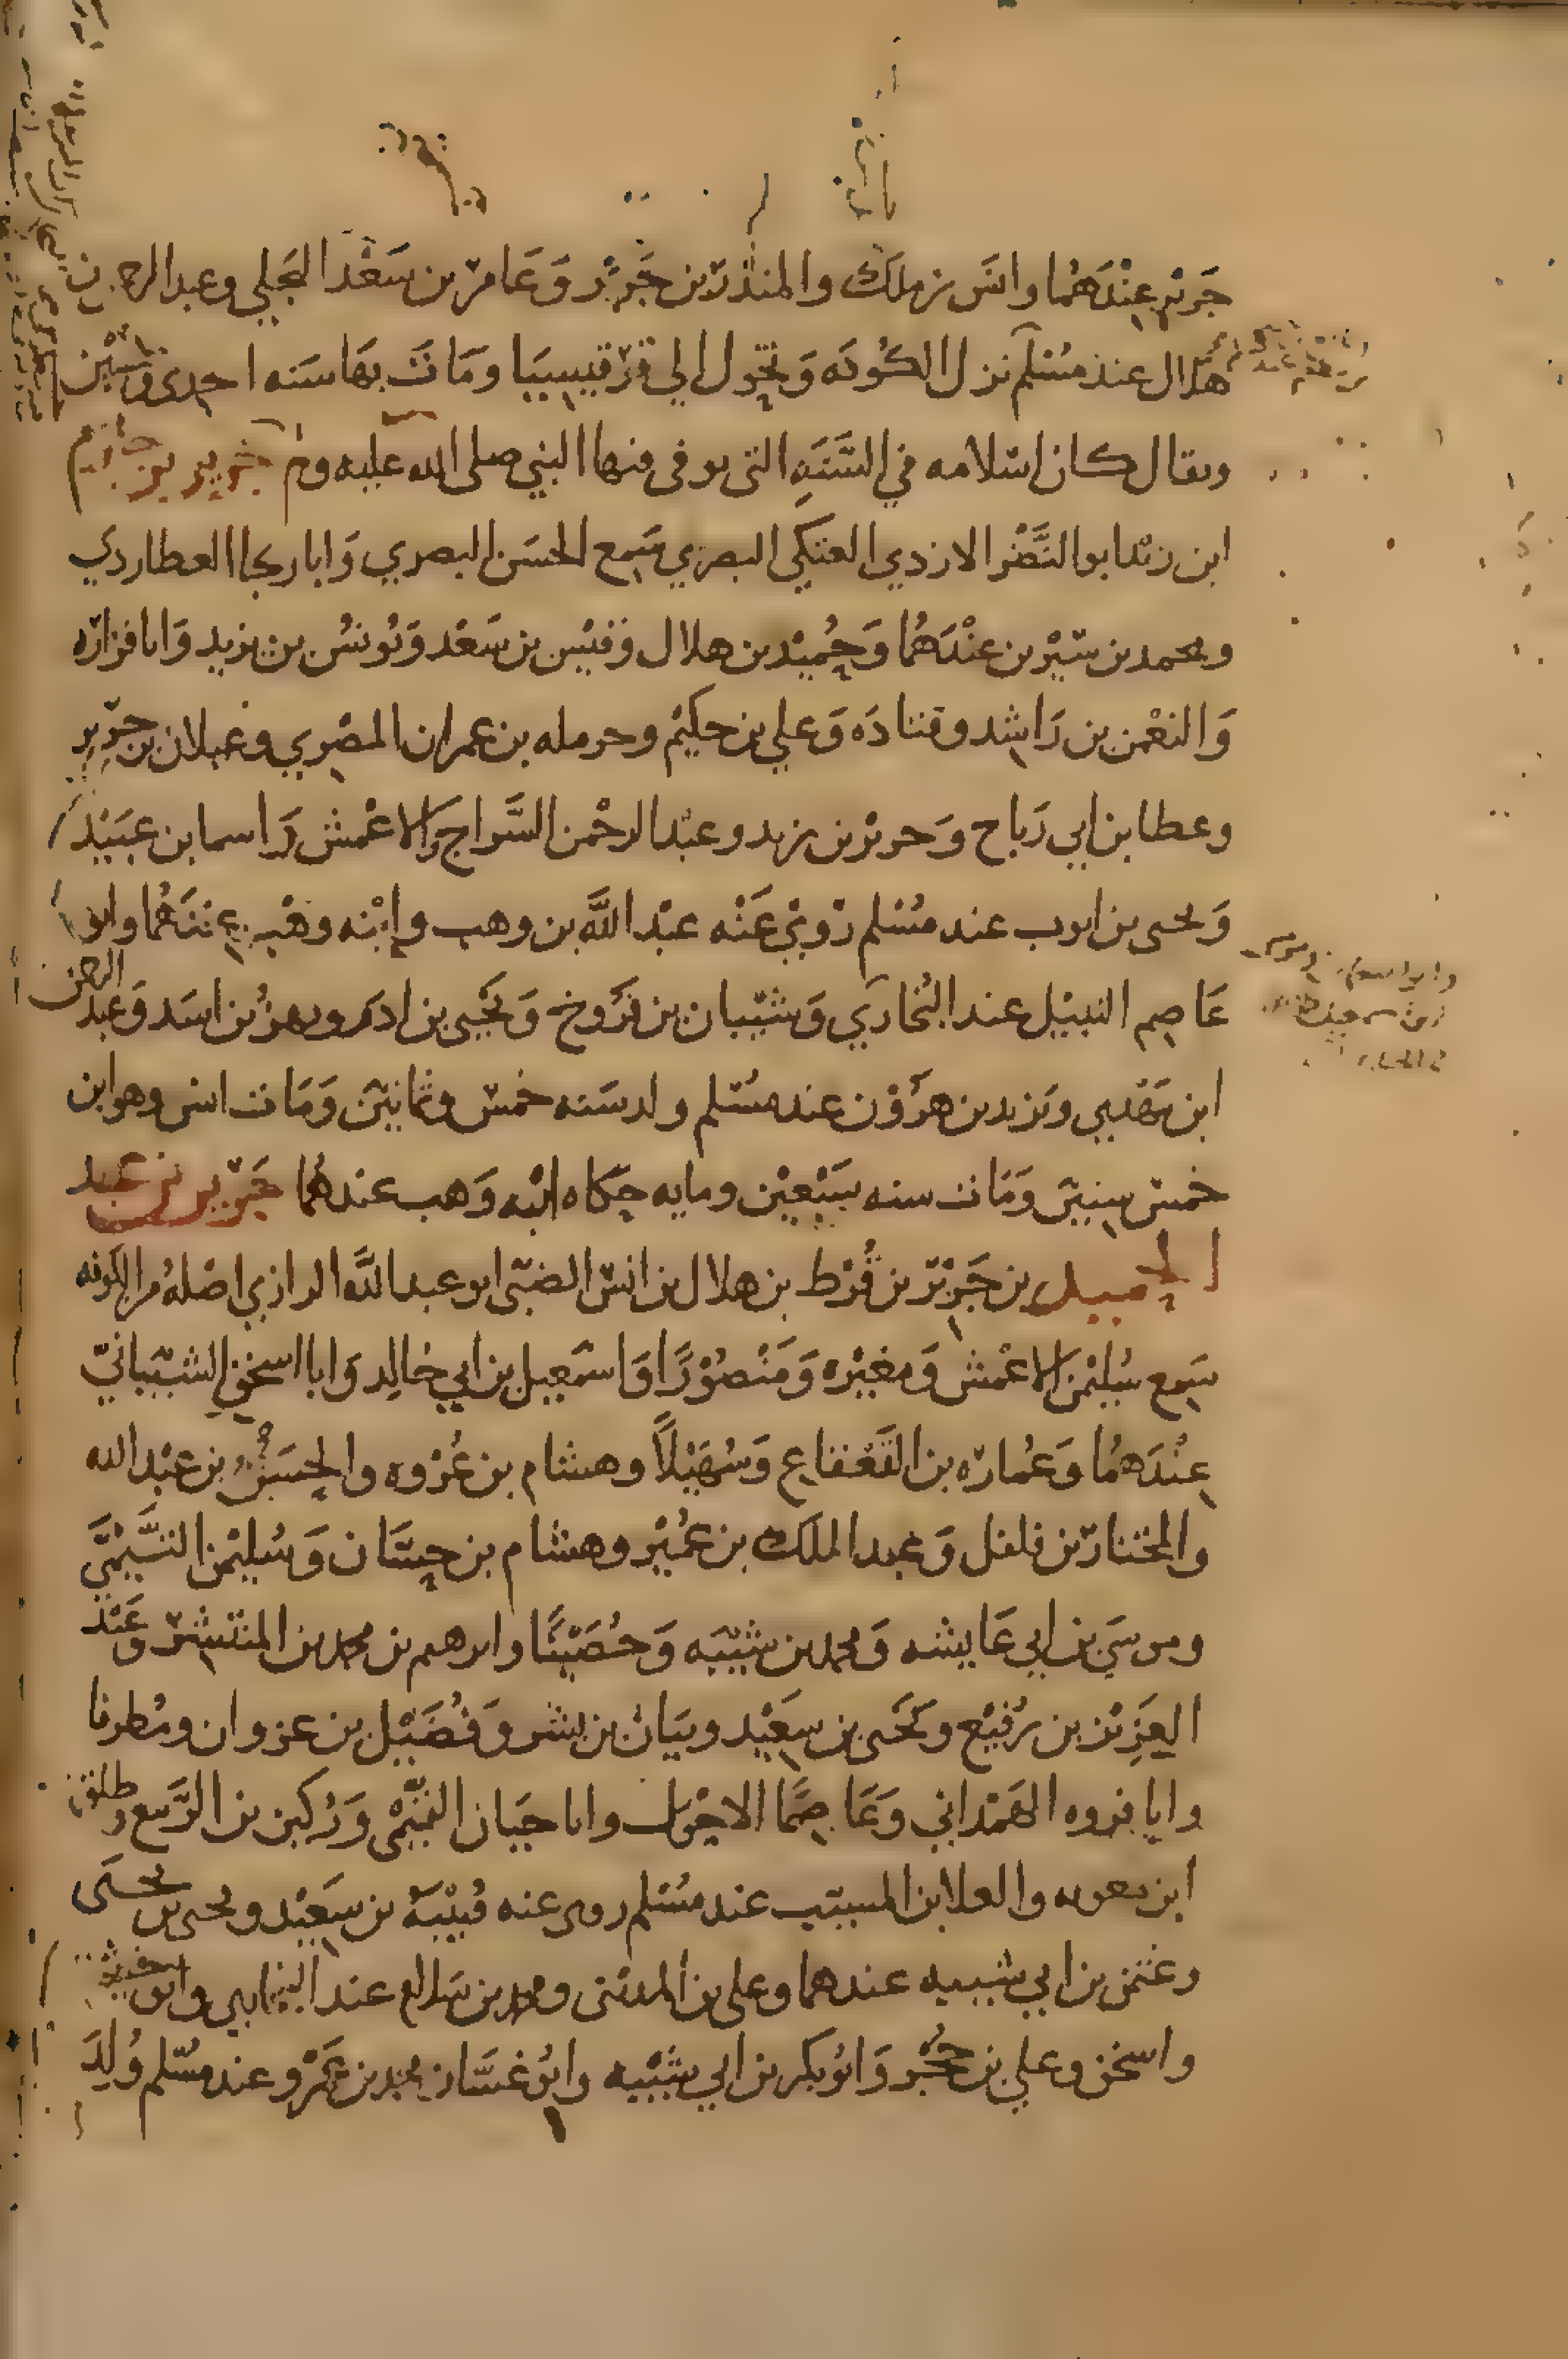 جَرير عِنْدَهُمَا وانَس بن ملك والمنذر بن جَرير وَعَامر بن سَعْد البجلي وعبد الرحمن بن
هلال عند مسُلم نزل الكوُفه وَتحَول الي قرقيسِيَا ومَاتَ بهَا سَنه احدى وخمسين
ويقال كان اسْلامه في السَّنَهِ التي توفى فيها النبي صلى الله عليه وم جَرير بن حازم
ابن زيد ابو النَّضْر الازدي العتكي البصري سَمِع الحسَن البصري وَابا رجا العطاردي
ومحمد بن سيْرين عنْدَهُما وَحُميْد بن هلال وَقيْس بن سَعْد وَيُونسُ بن يزيد وَابا فزاره
وَالنعْمن بن رَاشِد وقتادَه وَعلي بن حكيْم وحرمله بن عمران المصْري وغيلان بن جرير
وعطا بن ابي رَباح وَجرير بن يزيد وعبْد الرحْمن السَّراج وَالاعْمش وَاسما بن عبَيْد
وَيحيى بن ايوب عند مسُلم رَوىَ عَنْه عبْد اللَّه بن وهب وابْنه وهْب عِنْدَهُما وابو
عَاصِم النبيْل عند البُخاري وَشيْبان بن فرَوخ وَيَحْيى بن ادم وبهز بن اسَد وَعبد الرحمن
ابن مَهْدِي ويَزيد بن هرُوْن عند مسُلم ولد سَنه خمسْ وثمانينَ وَمَات انس وهو ابن
خمسْ سِنينَ وَمَات سنه سَبْعِيْن ومايه حكاه ابْنه وَهب عندهُما جَرير بن عبد
الحميد بن جَرير بن قُرْط بن هلال بن انسْ الضبّى ابو عبد اللَّه الرازي اصْلهُ من الكوفه
سَمِع سُليْمن الاعْمش وَمغيْره وَمَنْصُوْرًا وَاسْمَعِيل بن ابي خالِد وَابا اسحٰق الشيْبانيّ
عِنْدَهُمَا وَعُمارَه بن القَعْقاع وَسُهَيْلاً وهشام بن عُرْوه والحِسَن بن عبْد الله
والمختار بن فلفل وَعبد الملك بن عُميْر وهشام بن حسَّان وَسُليْمن التَّيْمِيَّ
وموسَي بن ابي عَايشه وَمحمد بن شيْبَه وَحُصَيْنًا وابرهيم بن محمد بن المنتَشر وَعَبْد
العَزِيْز بن رُفيْع وَيَحْيى بن سعَيْد وبيَان بن بشر وَفُضَيْل بن غزوان ومُطرفا
وابا فروه الهَمْداني وَعَاصِمًا الاحْول وابا حيَان التيْمْى وَرُكين بن الرَّبيع وطلق
ابن معويه والعلا بن المسيّب عند مسُلم روى عنه قُتيْبَة بن سعَيْد ويحيى بن يحيَى
وعثمن بن ابي شيبه عندهما وعلي بن المدينى ومحمد بن سَلام عند البخاري وابو خيثمة
واسحٰق وعلي بن حُجْر وَابُو بكر بن ابي شَيْبه وابُو غسَّان محمد بن عَمْرو عند مسُلم وُلِدَ